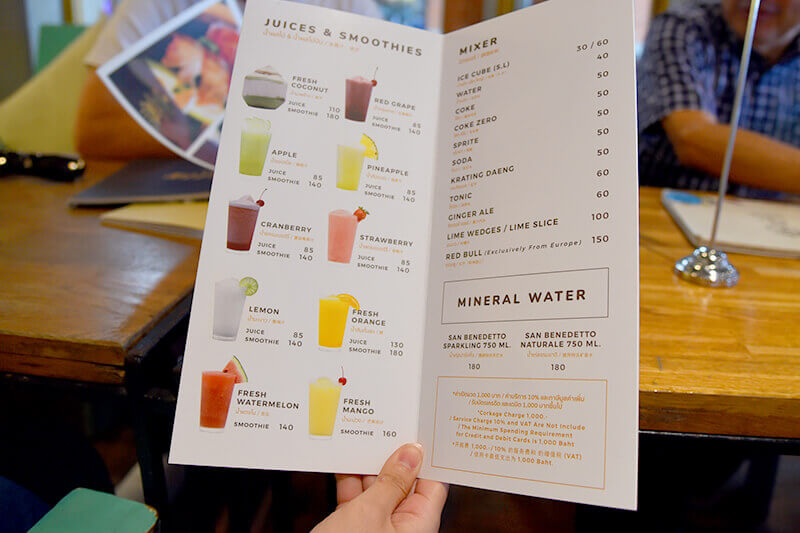 JUICES & SMOOTHIES
FRESH
COCONUT
JUICE 110
SMOOTHIE 180
RED GRAPE
JUICE 85
SMOOTHIE 140
APPLE
JUICE 85
SMOOTHIE 140
PINEAPPLE
JUICE 85
SMOOTHIE 140
CRANBERRY
JUICE 85
SMOOTHIE 140
STRAWBERRY
JUICE 85
SMOOTHIE 140
LEMON
JUICE 85
SMOOTHIE 140
FRESH
ORANGE
JUICE 130
SMOOTHIE 180
FRESH
WATERMELON
SMOOTHIE 140
FRESH
MANGO
SMOOTHIE 160
MIXER
ICE CUBE (S,L) 30 / 60
WATER 40
COKE 50
COKE ZERO 50
SPRITE 50
SODA 50
KRATING DAENG 50
TONIC 60
GINGER ALE 60
LIME WEDGES / LIME SLICE 100
RED BULL (Exclusively From Europe) 150
MINERAL WATER
SAN BENEDETTO
SPARKLING 750 ML.
180
SAN BENEDETTO
NATURALE 750 ML.
180
*ค่าเปิดขวด 1,000 บาท / ค่าบริการ 10% และภาษีมูลค่าเพิ่ม
/ รับบัตรเครดิต และเดบิต 1,000 บาทขึ้นไป
*Corkage Charge 1,000.-
/ Service Charge 10% and VAT Are Not Include
/ The Minimum Spending Requirement
for Credit and Debit Cards is 1,000 Baht
*开瓶费 1,000.-/ 10% 的服务费和 的增值税 (VAT)
/ 信用卡最低支出为 1,000 Baht.